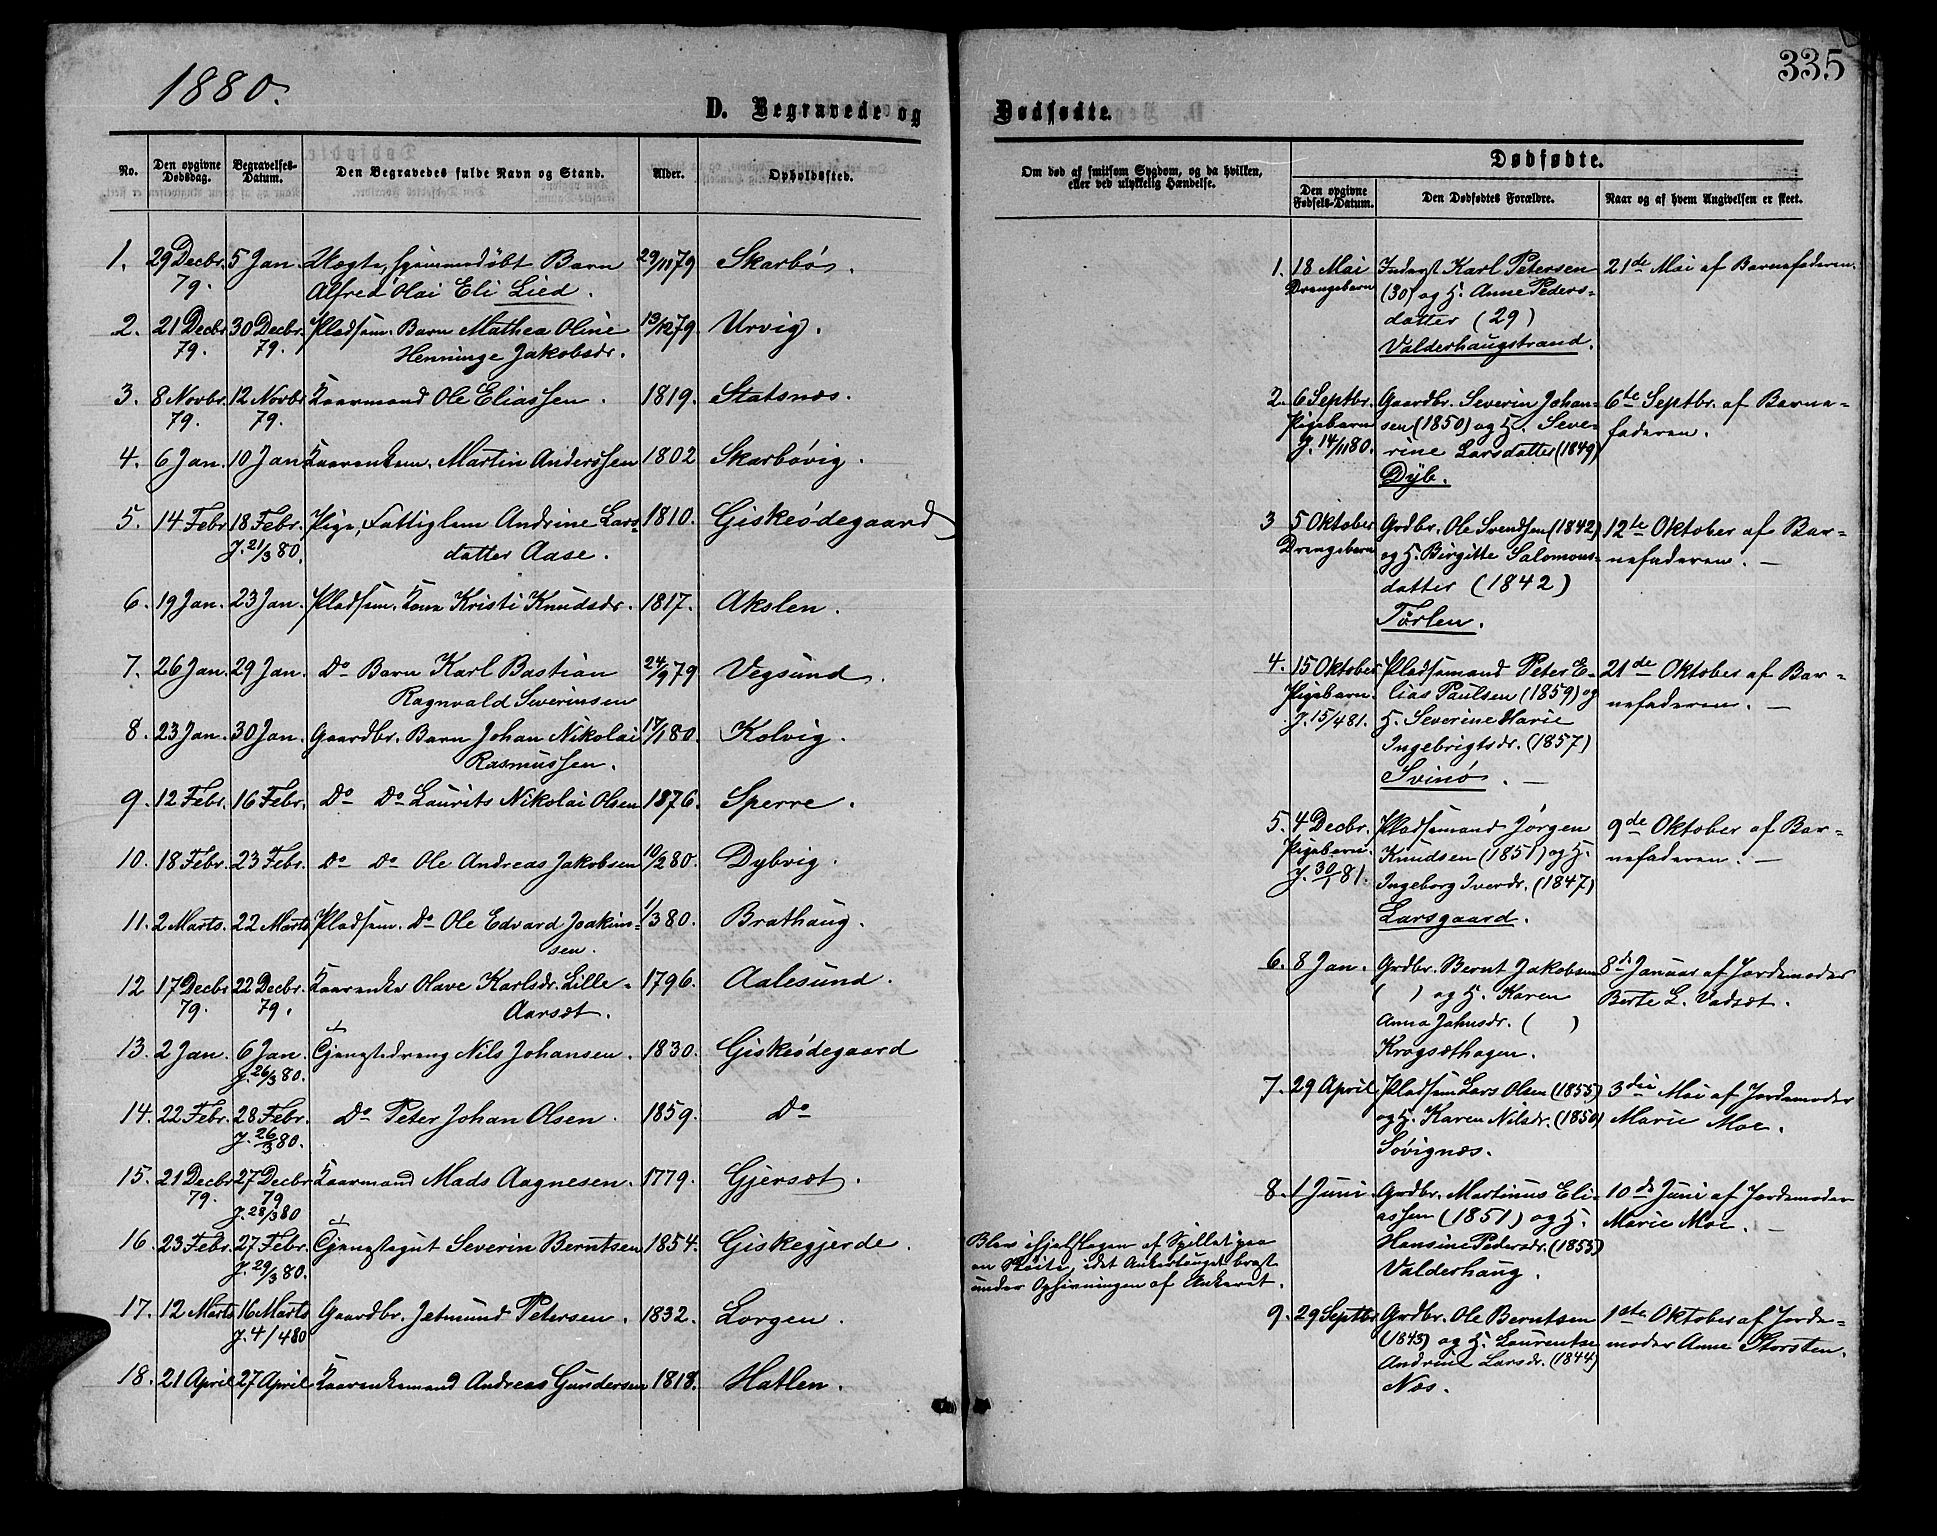 335
1880.
D. Begravede og Dødfødte.
No.
Den opgivne Dødsdag.
Begravelses-Datum.
Den Begravedes fulde Navn og Stand.
Alder.
Opholdssted.
1. 29 Decbr. 5 Jan. Uægte, hjemmedøbt Barn 29/11 79 Skarbø.
79. Alfred Olai Eli Lied.
2. 21 Decbr. 30 Decbr. Pladsem. Barn Mathea Oline 13/12 79 Urvig.
79. 79. Henninge Jakobsdr.
3. 8 Novbr. 12 Novbr. Kaarmand Ole Eliassen. 1819. Statsnæs.
79. 79.
4. 6 Jan. 10 Jan Kaarenkem. Martin Anderssen 1802 Skarbøvig.
5. 14 Febr 18 Febr. Pige, Fattiglem Andrine Lars- 1810. Giskeødegaard
J. 21/3 80. datter Aase.
6. 19 Jan. 23 Jan. Pladsem. Kone Kristi Knudsdr. 1817. Akslen.
7. 26 Jan. 29 Jan. Do Barn Karl Bastian 24/9 79 Vegsund.
Ragnvald Severinsen
8. 23 Jan. 30 Jan. Gaardbr. Barn Johan Nikolai 17/1 80. Kolvig.
Rasmussen.
9. 12 Febr. 16 Febr. Do Do Laurits Nikolai Olsen 1876. Sperre.
10. 18 Febr. 23 Febr. Do Do Ole Andreas Jakobsen 10/2 80. Dybvig.
11. 2 Marts. 22 Marts Pladsem. Do Ole Edvard Joakim- 1/3 80. Brathaug.
sen.
12 17 Decbr 22 Decbr. Kaarenke Olave Karlsdr. Lille- 1796. Aalesund.
79. 79. Aarsæt.
13. 2 Jan. 6 Jan. Tjenestedreng Nils Johansen. 1830. Giskeødegaard
J. 26/3 80.
14. 22 Febr. 28 Febr. Do Peter Johan Olsen. 1859. Do
J. 26/3 80.
15. 21 Decbr 27 Decbr Kaarmand Mads Aagnesen. 1779. Gjersæt.
79. 79
J. 28/3 80
16. 23 Febr. 27 Febr. Tjenestegut Severin Berntsen 1854. Giskegjerde.
J. 29/3 80.
17. 12 Marts 16 Marts Gaardbr. Jetmund Petersen. 1832. Lorgen.
J. 4/4 80
18. 21 April 27 April Kaarenkemand Andreas Gundersen 1818. Hatlen.
Om død af smitsom Sygdom, og da hvilken, eller ved ulykkelig Hændelse.
Blev ihjelslagen af Spillet paa
en Skøite, idet Ankertouget brast
under Ophivningen af Ankeret.
Dødfødte.
Den opgivne Fødsels-Datum.
Den Dødfødtes Forældre.
Naar og af hvem Angivelsen er skeet.
1. 18 Mai Inderst Karl Petersen 21de Mai af Barnefaderen.
Drengebarn (30) og H. Anne Peders-
datter (29)
Valderhaugstrand.
2. 6 Septbr. Gaardbr. Severin Johan- 6te Septbr. af Barne-
Pigebarn sen (1850) og H. Seve- faderen.
J. 14/11 80. rine Larsdatter (1849)
Dyb.
3 5 Oktober Grdbr. Ole Svendsen (1842) 12te Oktober af Bar-
Drengebarn og H. Birgitte Salomons- nefaderen. —
datter (1842)
Tørlen.
4. 15 Oktober Pladsemand Peter E- 21de Oktober af Bar-
Pigebarn. lias Paulsen (1859) og nefaderen. —
J. 15/4 81. H. Severine Marie
Ingebrigtsdr. (1857)
Svinø. —
5. 4 Decbr. Pladsemand Jørgen 9de Oktober af Bar-
Pigebarn. Knudsen (1851) og H. nefaderen. —
J. 30/1 81. Ingeborg Iverdr. (1847)
Larsgaard.
6. 8 Jan. Grdbr. Bernt Jakobsen 8de Januar af Jordemoder
( ) og H. Karen Berte L. Vadsæt.
Anna Johnsdr. ( )
Krogsæthagen.
7. 29 April Pladsem Lars Olsen (1855) 3die Mai af Jordemoder
og H. Karen Nilsdr. (1850) Marie Moe.
Søvignæs.
8. 1 Juni. Grdbr. Martinus Eli- 10de Juni af Jordemoder
assen (1851) og H. Marie Moe. —
Hansine Pedersdr. (1855)
Valderhaug.
9. 29 Septbr Grdbr. Ole Berntsen 1ste Oktober af Jorde-
(1845) og H. Laurentse moder Anne Storsten.
Andrine Larsdr. (1844)
Næs.